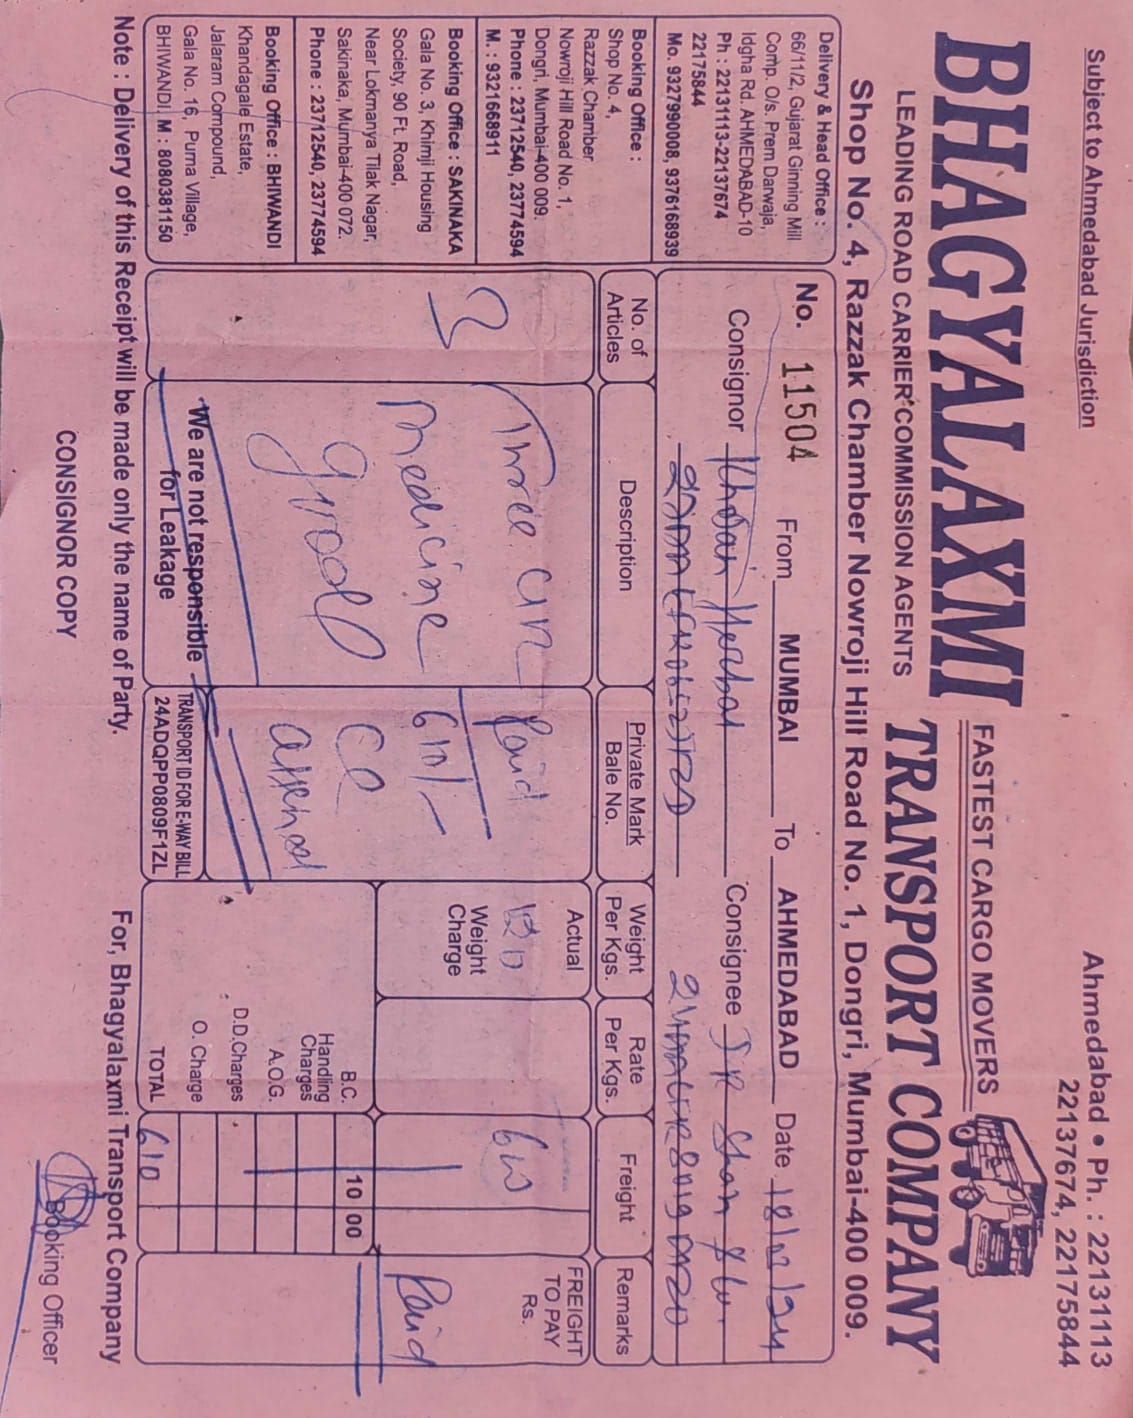 Subject to Ahmedabad Jurisdiction
Ahmedabad • Ph. : 22131113
22137674, 22175844
BHAGYALAXMI
FASTEST CARGO MOVERS
TRANSPORT COMPANY
LEADING ROAD CARRIER'COMMISSION AGENTS
Shop No. 4, Razzak Chamber Nowroji Hill Road No. 1, Dongri, Mumbai-400 009.
Delivery & Head Office :
66/11/2, Gujarat Ginning Mill
Comp. O/s. Prem Darwaja,
Idgha Rd. AHMEDABAD-10
Ph : 22131113-22137674
22175844
Mo. 9327990008, 9376168939
Booking Office :
Shop No. 4,
Razzak Chamber
Nowroji Hill Road No. 1,
Dongri, Mumbai-400 009.
Phone : 23712540, 23774594
M. : 9321668911
Booking Office : SAKINAKA
Gala No. 3, Khimji Housing
Society, 90 Ft. Road,
Near Lokmanya Tilak Nagar,
Sakinaka, Mumbai-400 072.
Phone : 23712540, 23774594
Booking Office : BHIWANDI
Khandagale Estate,
Jalaram Compound,
Gala No. 16, Purna Village,
BHIWANDI. M : 8080381150
No. 11504 From MUMBAI To AHMEDABAD Date
Consignor Consignee
No. of Articles
Description
Private Mark Bale No.
Weight Per Kgs.
Rate Per Kgs.
Freight
Remarks
3
Three
medicine
good
Paid
610/-
Actual
Weight Charge
FREIGHT TO PAY Rs.
Paid
B.C. 10 00
Handling Charges
A.O.G.
D.D.Charges
O. Charge
TOTAL 610
We are not responsible
for Leakage
TRANSPORT ID FOR E-WAY BILL
24ADQPP0809F1ZL
Note : Delivery of this Receipt will be made only the name of Party.
For, Bhagyalaxmi Transport Company
CONSIGNOR COPY
Booking Officer